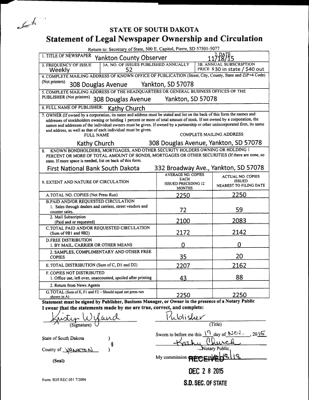 STATE OF SOUTH DAKOTA
Statement of Legal Newspaper Ownership and Circulation
Return to: Secretary of State, 500 E. Capitol, Pierre, SD 57501-5077
1. TITLE OF NEWSPAPER Yankton County Observer
2. DATE 11/18/15
3. FREQUENCY OF ISSUE Weekly
3A. NO. OF ISSUES PUBLISHED ANNUALLY 52
3B. ANNUAL SUBSCRIPTION PRICE $30 in state / $40 out
4. COMPLETE MAILING ADDRESS OF KNOWN OFFICE OF PUBLICATION (Street, City, County, State and ZIP+4 Code)
(Not printers) 308 Douglas Avenue Yankton, SD 57078
5. COMPLETE MAILING ADDRESS OF THE HEADQUARTERS OR GENERAL BUSINESS OFFICES OF THE
PUBLISHER (Not printers) 308 Douglas Avenue Yankton, SD 57078
6. FULL NAME OF PUBLISHER: Kathy Church
7. OWNER (If owned by a corporation, its name and address must be stated and list on the back of this form the names and
addresses of stockholders owning or holding 1 percent or more of total amount of stock. If not owned by a corporation, the
names and addresses of the individual owners must be given. If owned by a partnership or other unincorporated firm, its name
and address, as well as that of each individual must be given.
FULL NAME COMPLETE MAILING ADDRESS
Kathy Church 308 Douglas Avenue, Yankton, SD 57078
8. KNOWN BONDHOLDERS, MORTGAGEES, AND OTHER SECURITY HOLDERS OWNING OR HOLDING 1
PERCENT OR MORE OF TOTAL AMOUNT OF BONDS, MORTGAGES OR OTHER SECURITIES (If there are none, so
state. If more space is needed, list on back of this form.
First National Bank South Dakota 332 Broadway Ave., Yankton, SD 57078
9. EXTENT AND NATURE OF CIRCULATION
AVERAGE NO. COPIES EACH ISSUED PRECEDING 12 MONTHS
ACTUAL NO. COPIES ISSUED NEAREST TO FILING DATE
A. TOTAL NO. COPIES (Net Press Run) 2250 2250
B. PAID AND/OR REQUESTED CIRCULATION
1. Sales through dealers and carriers, street vendors and
counter sales. 72 59
2. Mail Subscription
(Paid and or requested) 2100 2083
C. TOTAL PAID AND/OR REQUESTED CIRCULATION
(Sum of 9B1 and 9B2) 2172 2142
D. FREE DISTRIBUTION
1. BY MAIL, CARRIER OR OTHER MEANS 0 0
2. SAMPLES, COMPLIMENTARY AND OTHER FREE
COPIES 35 20
E. TOTAL DISTRIBUTION (Sum of C, D1 and D2) 2207 2162
F. COPIES NOT DISTRIBUTED
1. Office use, left over, unaccounted, spoiled after printing 43 88
2. Return from News Agents
G. TOTAL (Sum of E, F1 and F2 – Should equal net press run
shown in A) 2250 2250
Statement must be signed by Publisher, Business Manager, or Owner in the presence of a Notary Public
I swear that the statements made by me are true, correct, and complete:
Kristy Wyland Publisher
(Signature) (Title)
State of South Dakota )
County of YANKTON )
Sworn to before me this 17 day of NOV. , 2015
Kathy Church
Notary Public
(Seal) My commission
RECEIVED
DEC 28 2015
S.D. SEC. OF STATE